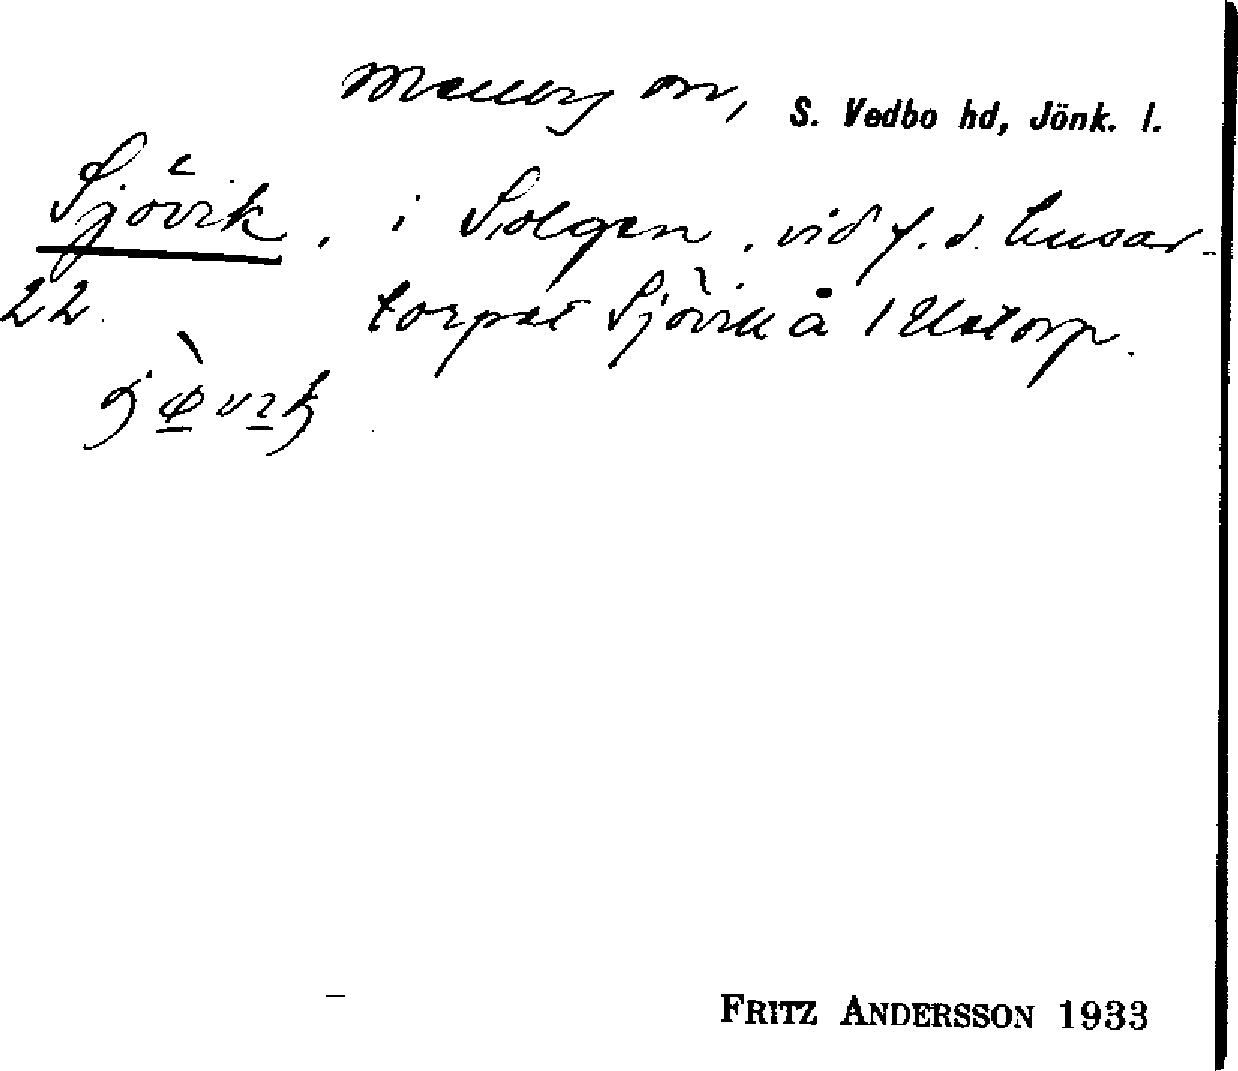 Mellby sn, S. Vedbo hd, Jönk. l.
Sjövik, i Solgen, vid f. d. husar-
22. torpet Sjövik å Ulstorp.
FRITZ ANDERSSON 1933